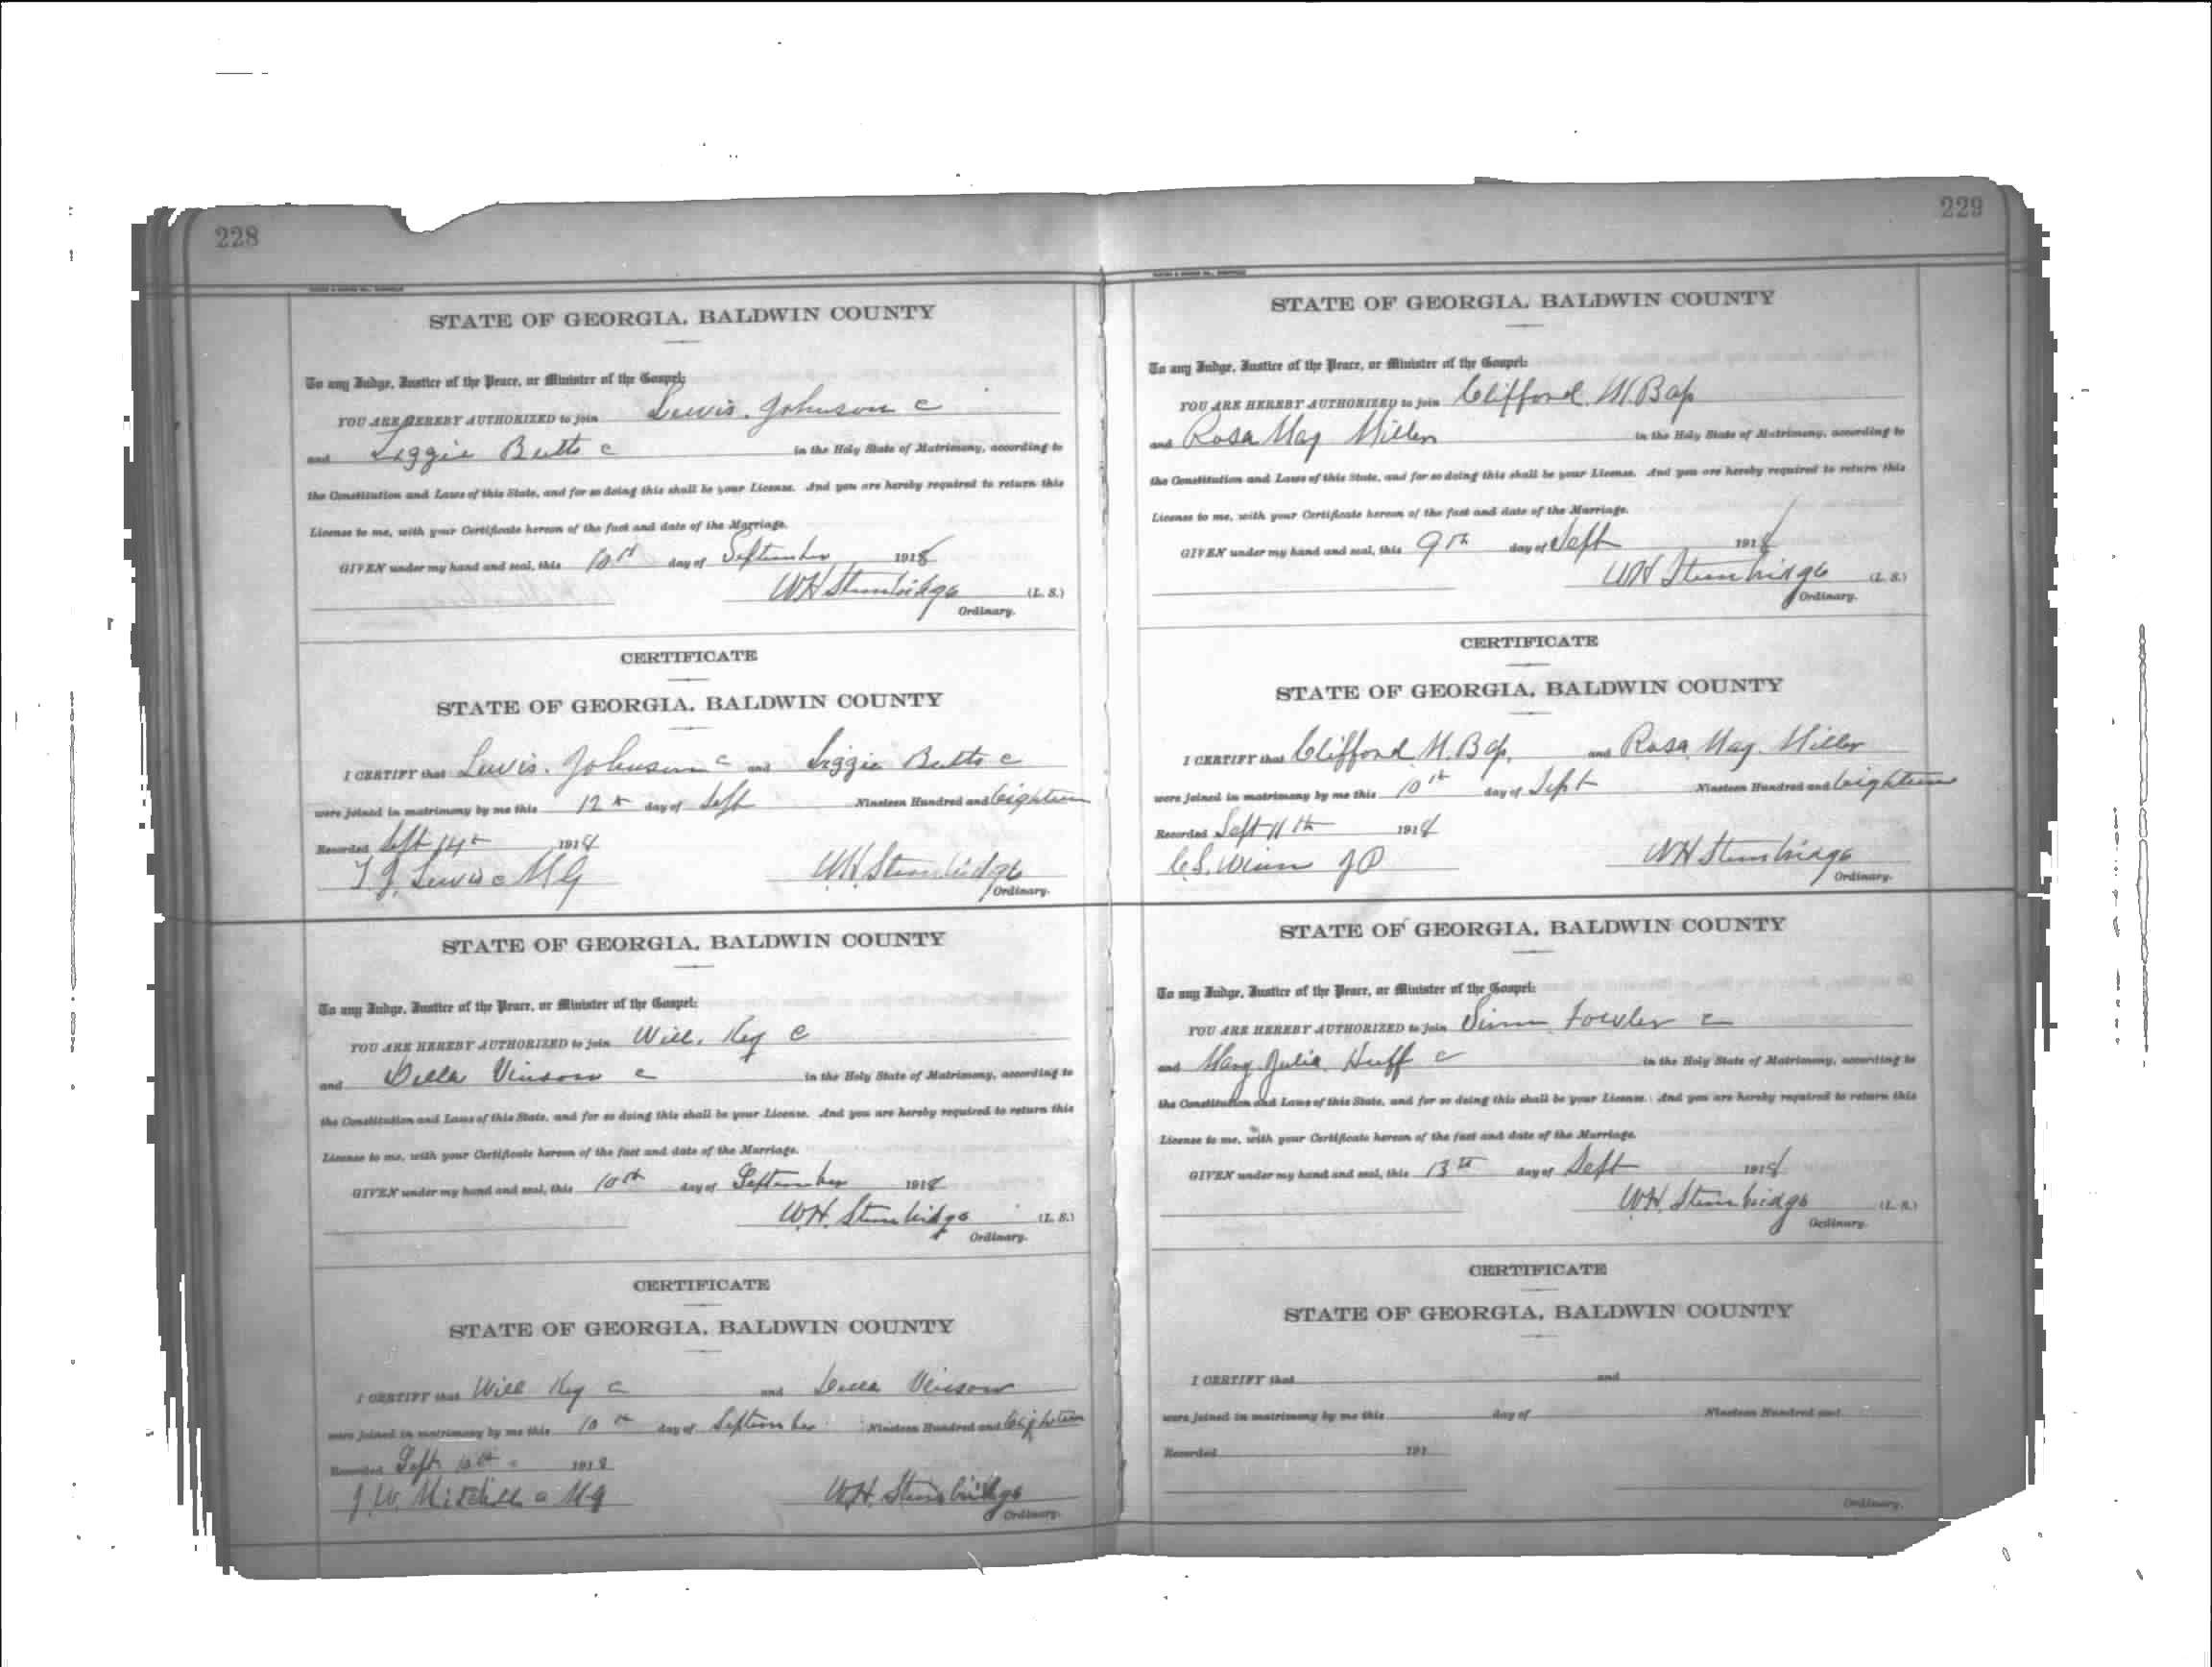 228
STATE OF GEORGIA, BALDWIN COUNTY
To any Judge, Justice of the Peace, or Minister of the Gospel:
YOU ARE HEREBY AUTHORIZED to join Lewis. Johnson c
and Lizzie Butts c in the Holy State of Matrimony, according to
the Constitution and Laws of this State, and for so doing this shall be your License. And you are hereby required to return this
License to me, with your Certificate hereon of the fact and date of the Marriage.
GIVEN under my hand and seal, this 10th day of September 1918
WH Stembridge (L. S.)
Ordinary.
CERTIFICATE
STATE OF GEORGIA, BALDWIN COUNTY
I CERTIFY that Lewis. Johnson c and Lizzie Butts c
were joined in matrimony by me this 12th day of Sept Nineteen Hundred and Eighteen
Recorded Sept 14th 1918
T J. Lewis c MG WH. Stembridge
Ordinary.
STATE OF GEORGIA, BALDWIN COUNTY
To any Judge, Justice of the Peace, or Minister of the Gospel:
YOU ARE HEREBY AUTHORIZED to join Will. Key C
and Della Vinson c in the Holy State of Matrimony, according to
the Constitution and Laws of this State, and for so doing this shall be your License. And you are hereby required to return this
License to me, with your Certificate hereon of the fact and date of the Marriage.
GIVEN under my hand and seal, this 10th day of September 1918
W.H. Stembridge (L. S.)
Ordinary.
CERTIFICATE
STATE OF GEORGIA, BALDWIN COUNTY
I CERTIFY that Will Key c and Della Vinson
were joined in matrimony by me this 10th day of September Nineteen Hundred and Eighteen
Recorded Sept 1918
J. W. Mitchell c MG W.H. Stembridge
Ordinary.
229
STATE OF GEORGIA, BALDWIN COUNTY
To any Judge, Justice of the Peace, or Minister of the Gospel:
YOU ARE HEREBY AUTHORIZED to join Clifford. M.
and Rosa May Miller in the Holy State of Matrimony, according to
the Constitution and Laws of this State, and for so doing this shall be your License. And you are hereby required to return this
License to me, with your Certificate hereon of the fact and date of the Marriage.
GIVEN under my hand and seal, this 9th day of Sept 1918
WH Stembridge (L. S.)
Ordinary.
CERTIFICATE
STATE OF GEORGIA, BALDWIN COUNTY
I CERTIFY that Clifford M. and Rosa May. Miller
were joined in matrimony by me this 10th day of Sept Nineteen Hundred and Eighteen
Recorded Sept 11th 1918
C.S. Winn JP WH Stembridge
Ordinary.
STATE OF GEORGIA, BALDWIN COUNTY
To any Judge, Justice of the Peace, or Minister of the Gospel:
YOU ARE HEREBY AUTHORIZED to join Fowler c
and Mary Julia Huff c in the Holy State of Matrimony, according to
the Constitution and Laws of this State, and for so doing this shall be your License. And you are hereby required to return this
License to me, with your Certificate hereon of the fact and date of the Marriage.
GIVEN under my hand and seal, this 13th day of Sept 1918
W.H. Stembridge (L. S.)
Ordinary.
CERTIFICATE
STATE OF GEORGIA, BALDWIN COUNTY
I CERTIFY that and
were joined in matrimony by me this day of Nineteen Hundred and
Recorded 191
Ordinary.